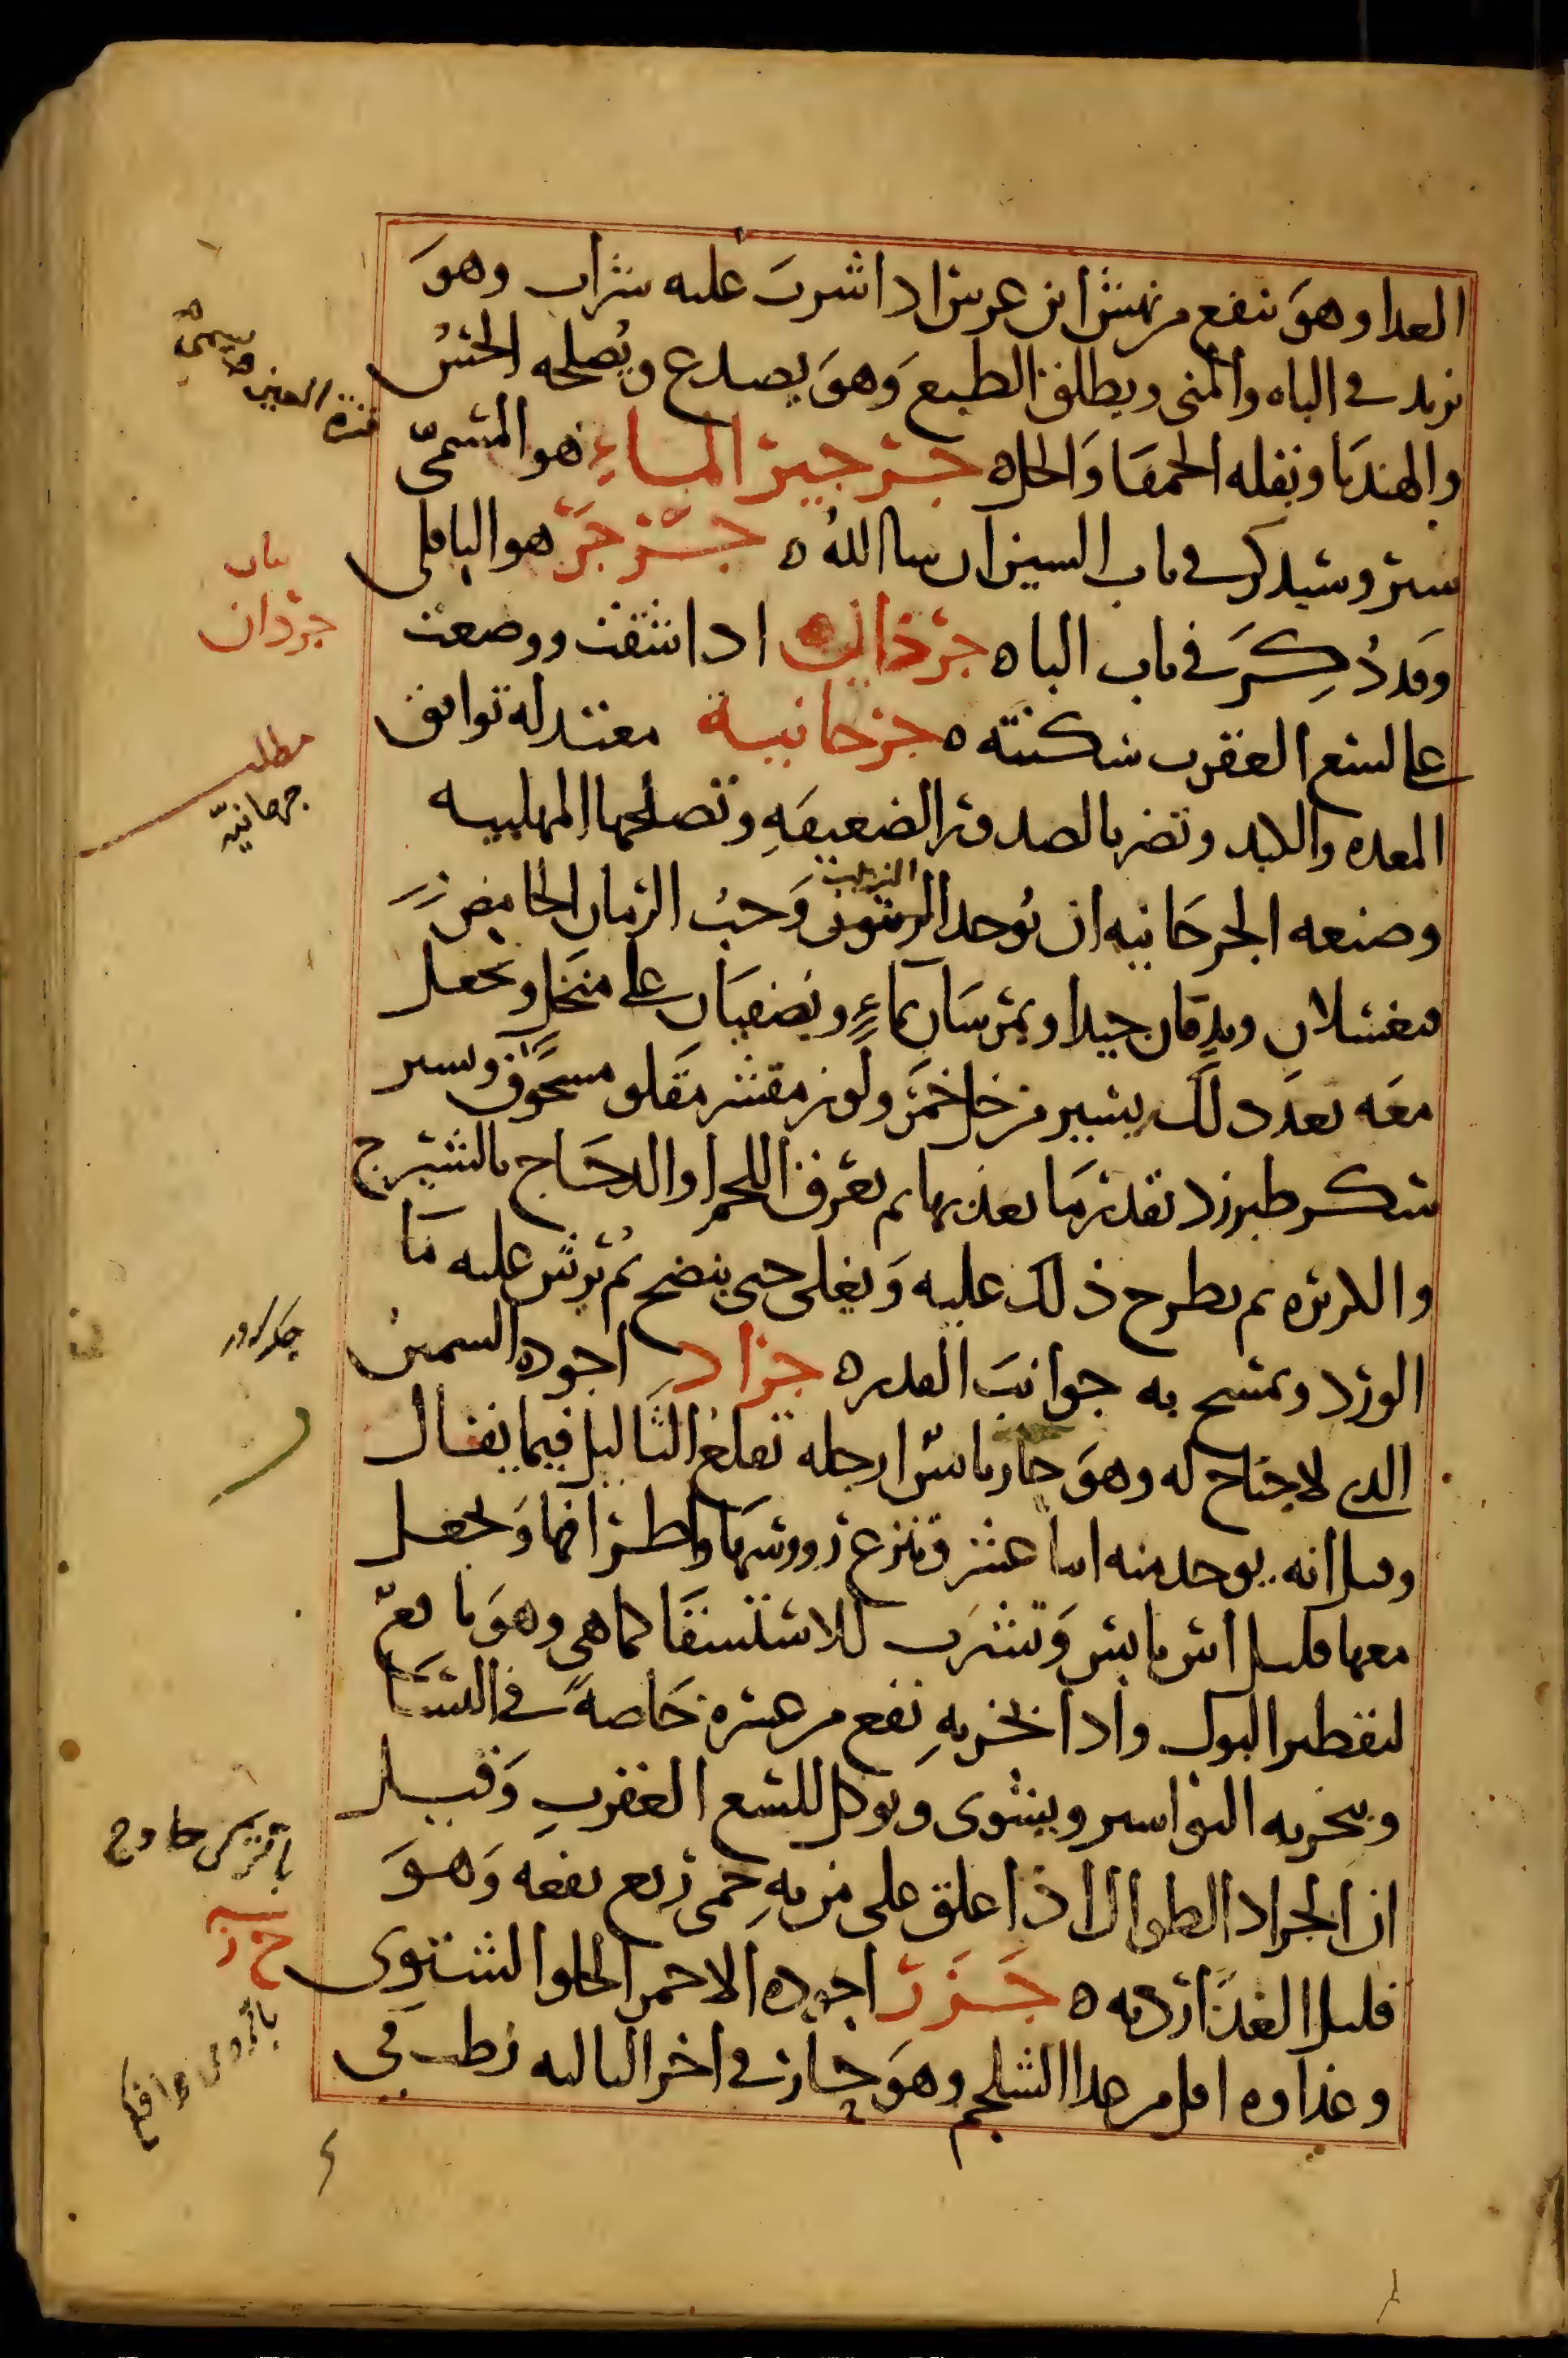 الغدا وهو ينفع من نهش ابن عرس اذا شرب عليه شراب وهو
يزيد في الباه والمنى ويطلق الطبع وَهوَ يصدع ويُصلحه الخسُ
والهندبا وبقله الحمقا وَالخل ه جرجير الماءِ هو المسمّى
سير وسيذكر في باب السين ان سا اللهُ ه جرجَر هو الباقلى
وَقد ذُكِرَ في باب الباه جرذان اذا شقت ووضعت
على لسع العقرب سكنته ه جرجانية معتدله توافق
المعده والكبد وتضر بالصدور الضعيفهِ وتصلحها المهلبيه
وصنعه الجرجَانيه ان يُوخذ الزبيب وَحبُ الرمان الحامض
فيغسلان ويدقان جيدا ويمرسَان بمَاءٍ ويصفيَان على منخل ويجعل
معَه بعدَ ذلك يسير من خل خمرَ ولوز مقشر مقلو مسحوق ويسير
سكر طبرزد بقدر مَا يعذبها ثم يعرق اللحم او الدجَاج بالشيرج
والكزبره ثم يطرح ذلك عليه وَيغلى حتى ينضج ثم يُرش عليه مَا
الورد ويمسح به جوانبَ القدره جراد اجوده السمين
الذي لا جناح له وهوَ حار يابس ارجله تقلع الثاليل فيما يقال
وقيل انه يوخذ منه اثنا عشر وتنزع رووسهَا واطرافها وَيجعل
معها قليل اس يابس وَتشرَب للاستسقَا كما هي وهوَ نافع
لتقطير البول واذا بخر بهِ نفع من عسره خَاصهً في النسَا
ويبخر به البواسير ويشوى ويوكل للسع العقربِ وَقيل
ان الجراد الطوال اذا علق على من بهِ حمى ربع نفعه وَهوَ
قليل الغدَا ارديه ه جَزَر اجوده الاحمر الحلو الشتوي
وغذاوه اقل من غدا الشلجم وهوَ حار في اخر الثانيه رطب في
باب
جرذان
مطلب
جرجانيه
جزر